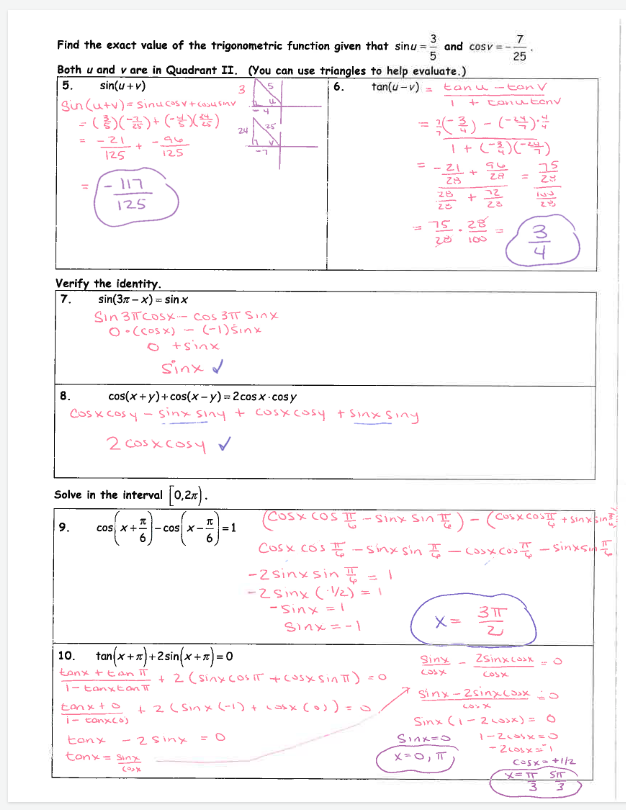 Find the exact value of the trigonometric function given that sin u = 3/5 and cos v = -7/25.
Both u and v are in Quadrant II. (You can use triangles to help evaluate.)
5. sin(u+v)
Sin(u+v) = sinu cosv + cosu sinv
= (3/5)(-7/25) + (-4/5)(24/25)
= -21/125 + -96/125
= -117/125
3 5 u -4
24 25 v -7
6. tan(u-v) = tan u - tan v / 1 + tanu tanv
= 7/7(-3/4) - (-24/7)·4/4 / 1 + (-3/4)(-24/7)
= -21/28 + 96/28 / 28/28 + 72/28 = 75/28 / 100/28
= 75/28 · 28/100 = 3/4
Verify the identity.
7. sin(3π - x) = sin x
Sin 3π cosx - cos 3π sinx
0·(cosx) - (-1)sinx
0 + sinx
Sinx ✓
8. cos(x+y)+cos(x-y)=2cos x·cos y
Cosx cosy - sinx siny + cosx cosy + sinx siny
2 cosx cosy ✓
Solve in the interval [0,2π).
9. cos(x+π/6)-cos(x-π/6)=1
(Cosx cos π/6 - sinx sin π/6) - (cosx cos π/6 + sinx sin π/6)
Cosx cos π/6 - sinx sin π/6 - cosx cos π/6 - sinx sin π/6
-2 sinx sin π/6 = 1
-2 sinx (1/2) = 1
-sinx = 1
Sinx = -1
x = 3π/2
10. tan(x+π)+2sin(x+π)=0
tanx + tan π / 1 - tanx tan π + 2(sinx cos π + cosx sin π) = 0
tanx + 0 / 1 - tanx(0) + 2(sinx(-1) + cosx(0)) = 0
tanx - 2 sinx = 0
tanx = sinx/cosx
sinx/cosx - 2sinxcosx/cosx = 0
sinx - 2sinxcosx / cosx = 0
Sinx(1 - 2cosx) = 0
Sinx=0 1-2cosx=0
x=0, π -2cosx=-1
cosx=+1/2
x= π/3 5π/3